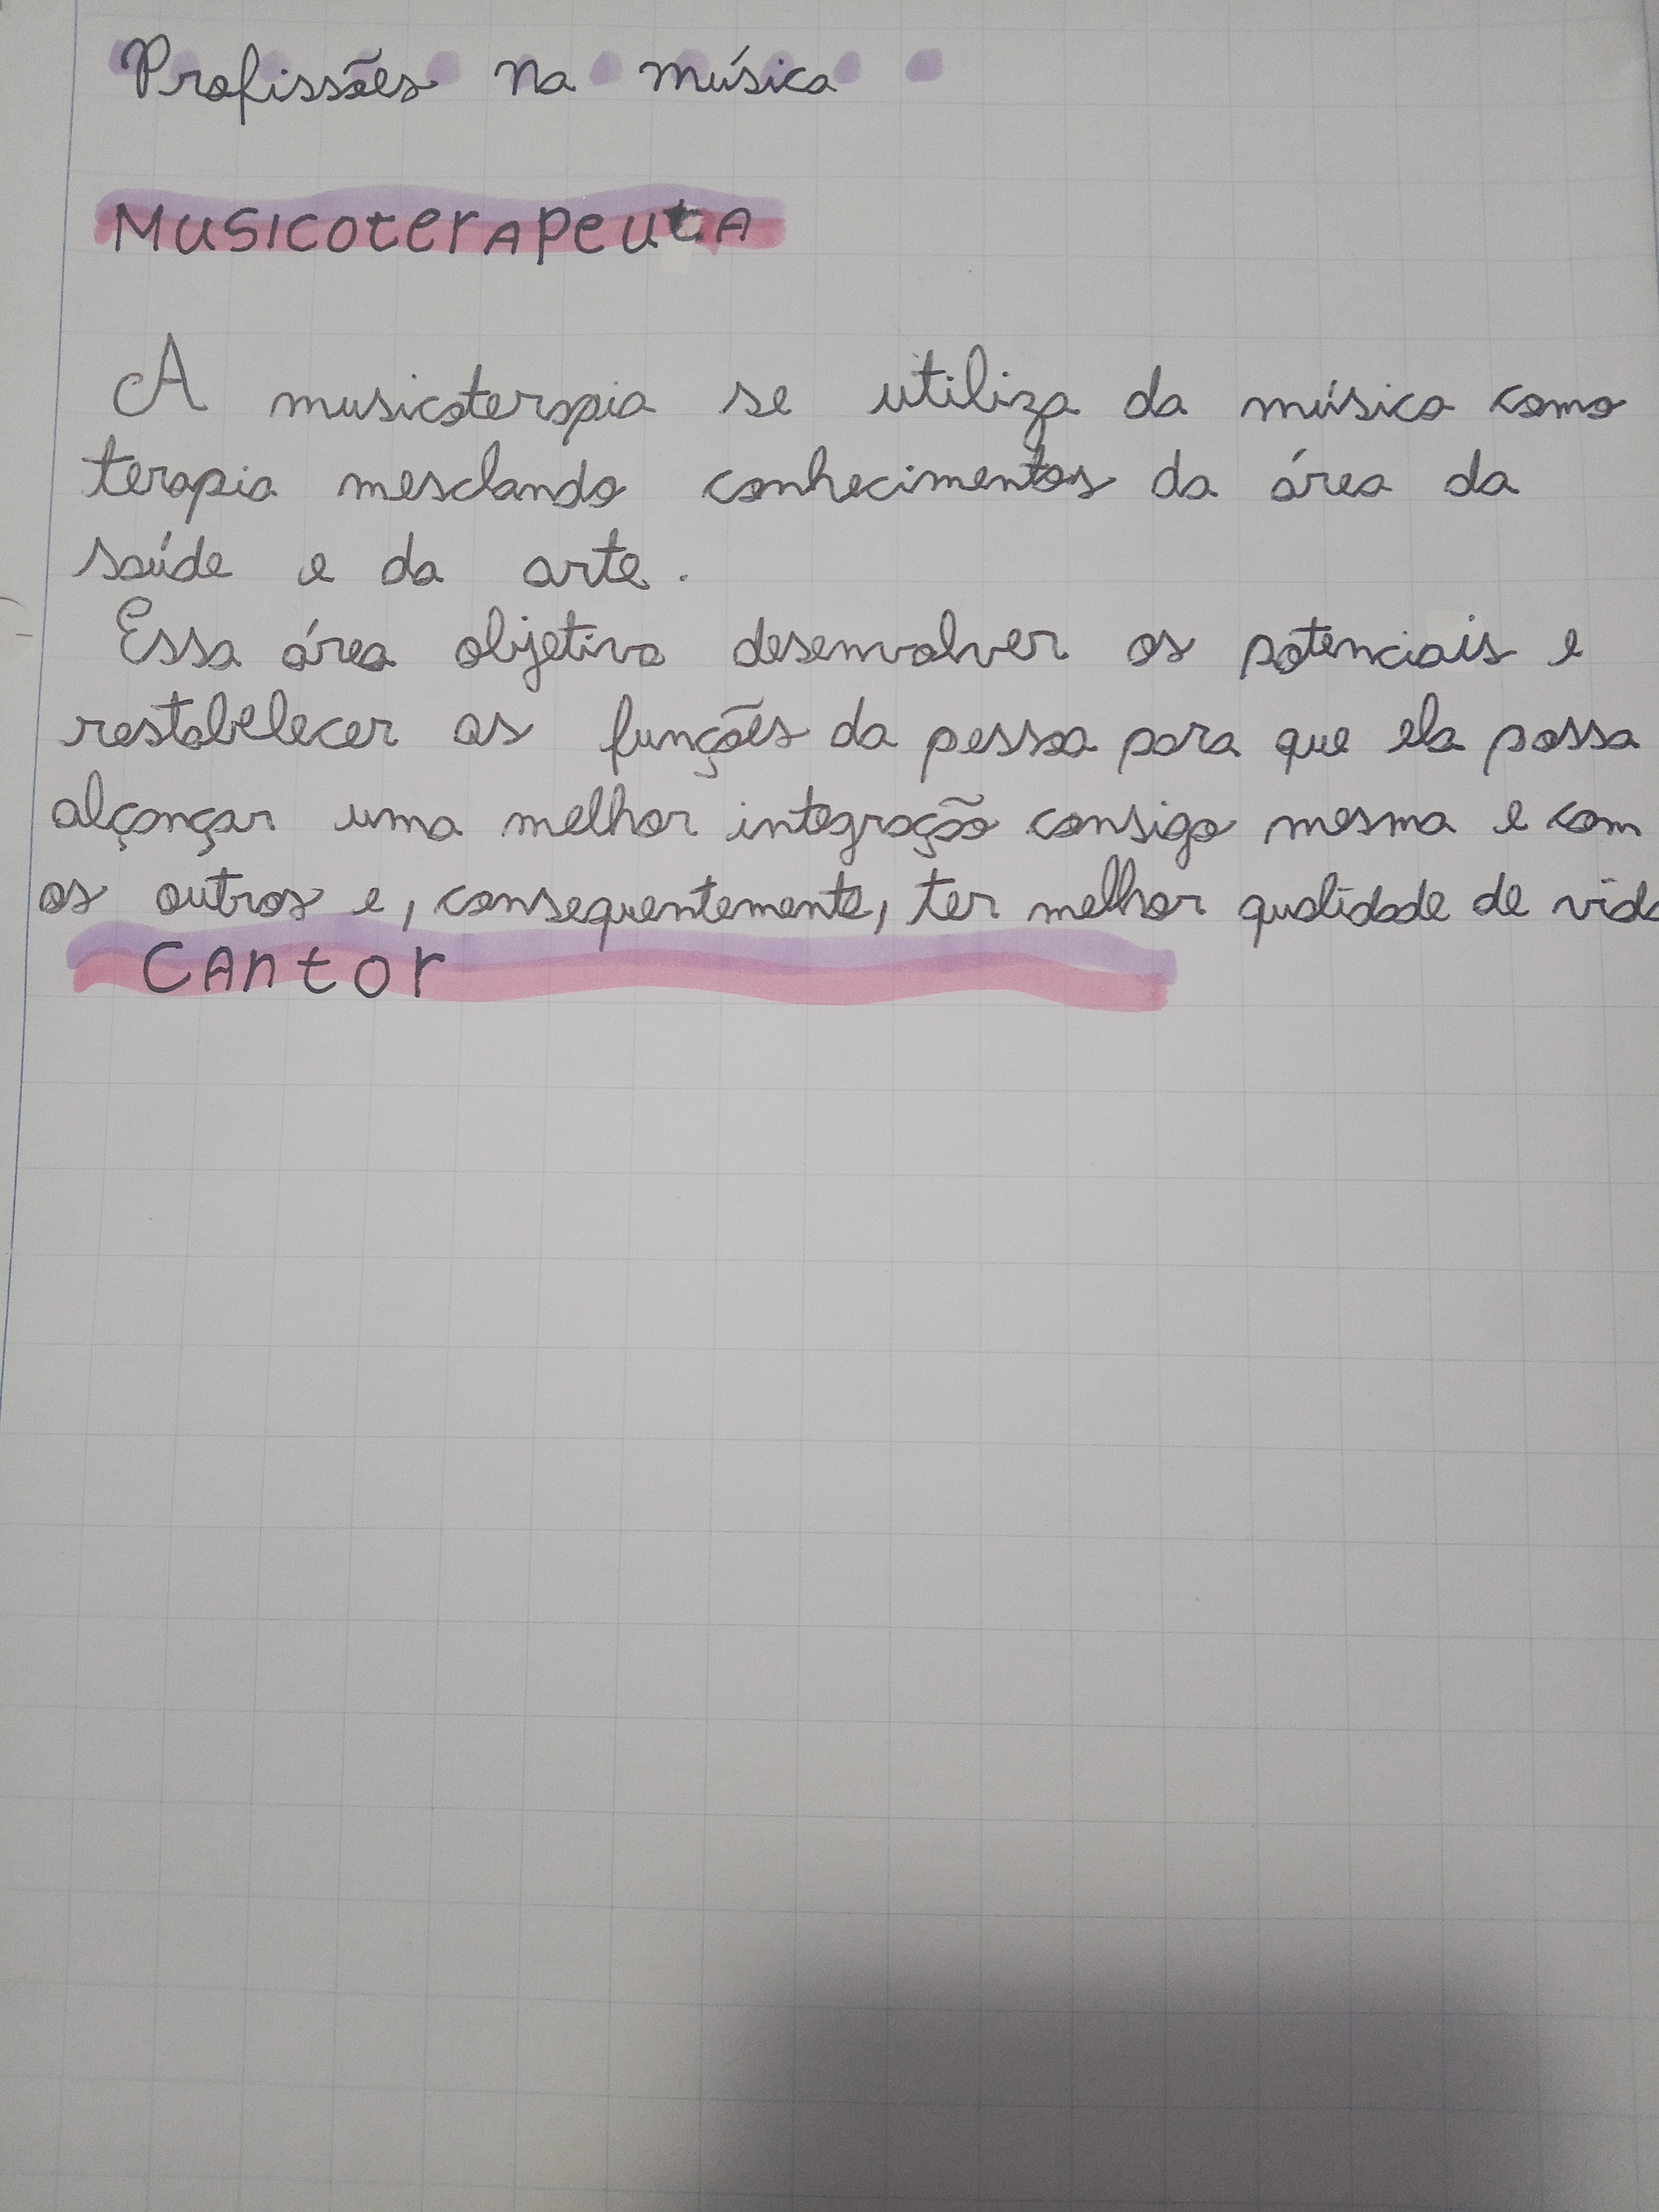 Profissões na música
Musicoterapeuta
A musicoterapia se utiliza da música como
terapia mesclando conhecimentos da área da
saúde e da arte.
Essa área objetiva desenvolver os potenciais e
restabelecer as funções da pessoa para que ela possa
alçançar uma melhor integração consigo mesma e com
os outros e, consequentemente, ter melhor qualidade de vida
Cantor